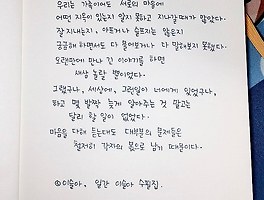 우리는 가족이어도 서로의 마음에
어떤 지옥이 있는지 알지 못하고 지나갈 때가 많았다.
잘 지내는지, 아프거나 슬프지는 않은지
궁금해 하면서도 다 물어보거나 다 말하지 못했다.
오랜만에 만나 긴 이야기를 하면
새삼 놀랄 뿐이었다.
그랬구나, 세상에, 그런일이 너에게 있었구나,
하고 몇 발짝 늦게 알아주는 것 말고는
달리 할 일이 없었다.
마음을 다해 듣는대도 대부분의 문제들은
철저히 각자의 몫으로 남기 때문이다.
©이슬아, 일간 이슬아 수필집.